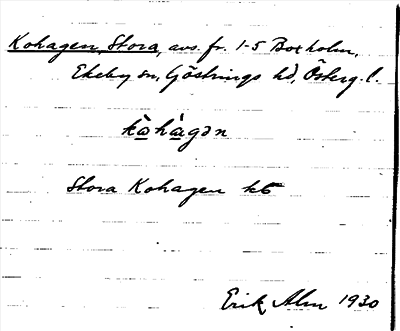 Kohagen, Stora, avs. fr. 1-5 Boxholm,
Ekeby sn, Göstrings hd, Österg. l.
kàhàgən
Stora Kohagen
Erik Alm 1930